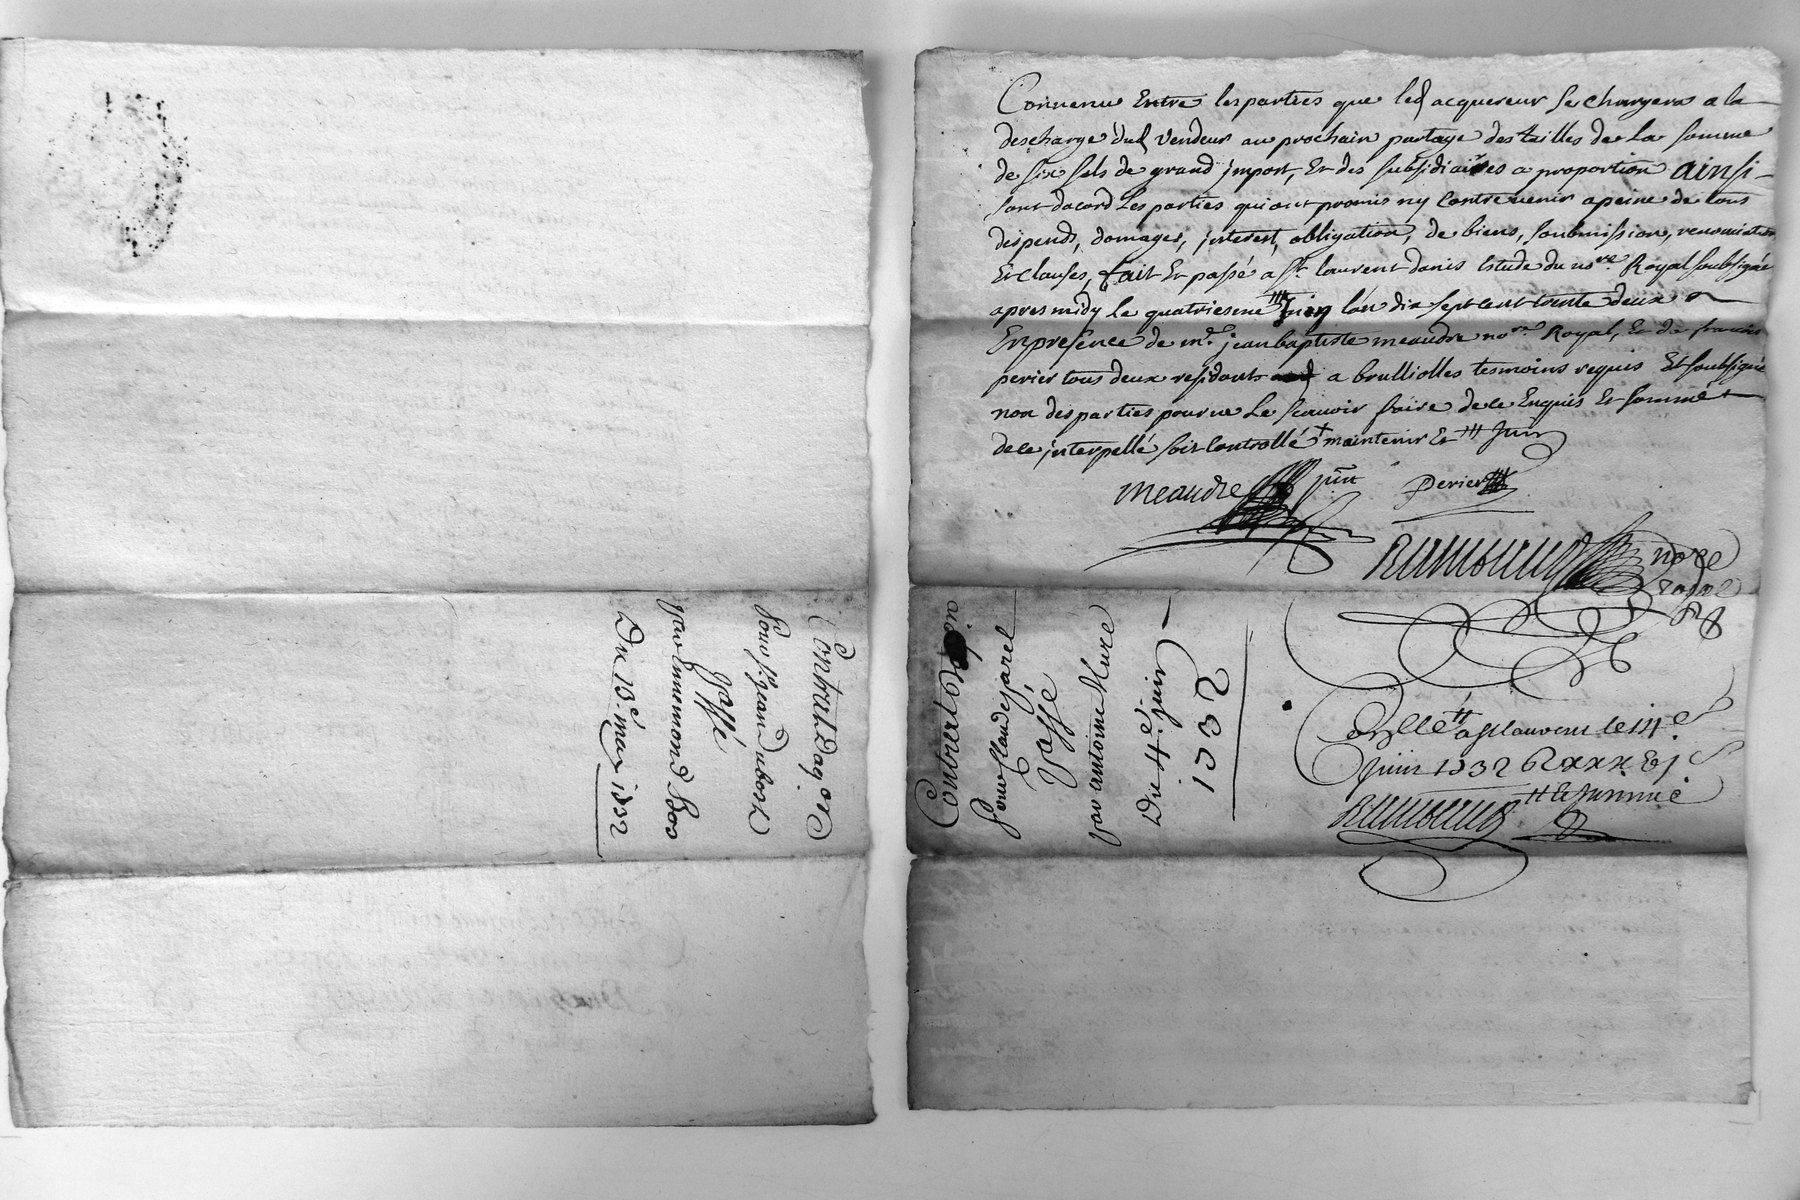 Contrat Dacord
pour sr. jean Dubost
passé
Du 13e. may 1732
Convenu Entre les parties que led acquereur se chargera a la
descharge dud vendeur au prochain partage des tailles de la somme
de six sols de grand jmpost, Et des subsidiaires a proportion ainsi
sont dacord Les parties qui ont promis ny Contrevenir a peine de tous
despends, domages, jnterest, obligation, de biens, soubmission, renonciation
Et clauses, fait Et passé a St. laurent danis Estude du nore. Royal soubsigné
apres midy Le quatriesme juin lan dix sept cent trente deux
En presence de me. jean baptiste meaudre nore Royal, Et de francois
perier tous deux residants a brulliolles tesmoins requis Et soubsignés
non des parties pour ne Le scavoir faire de ce Enquis Et sommés
de ce jnterpellé soit Controllé + maintenir Et /// Juin
meaudre perier
nore
royal
Contrat
pour Claude jarel
passé
par antoine Mure
Du 4e. juin
1732
Conllé a St laurent le 14e
juin 1732